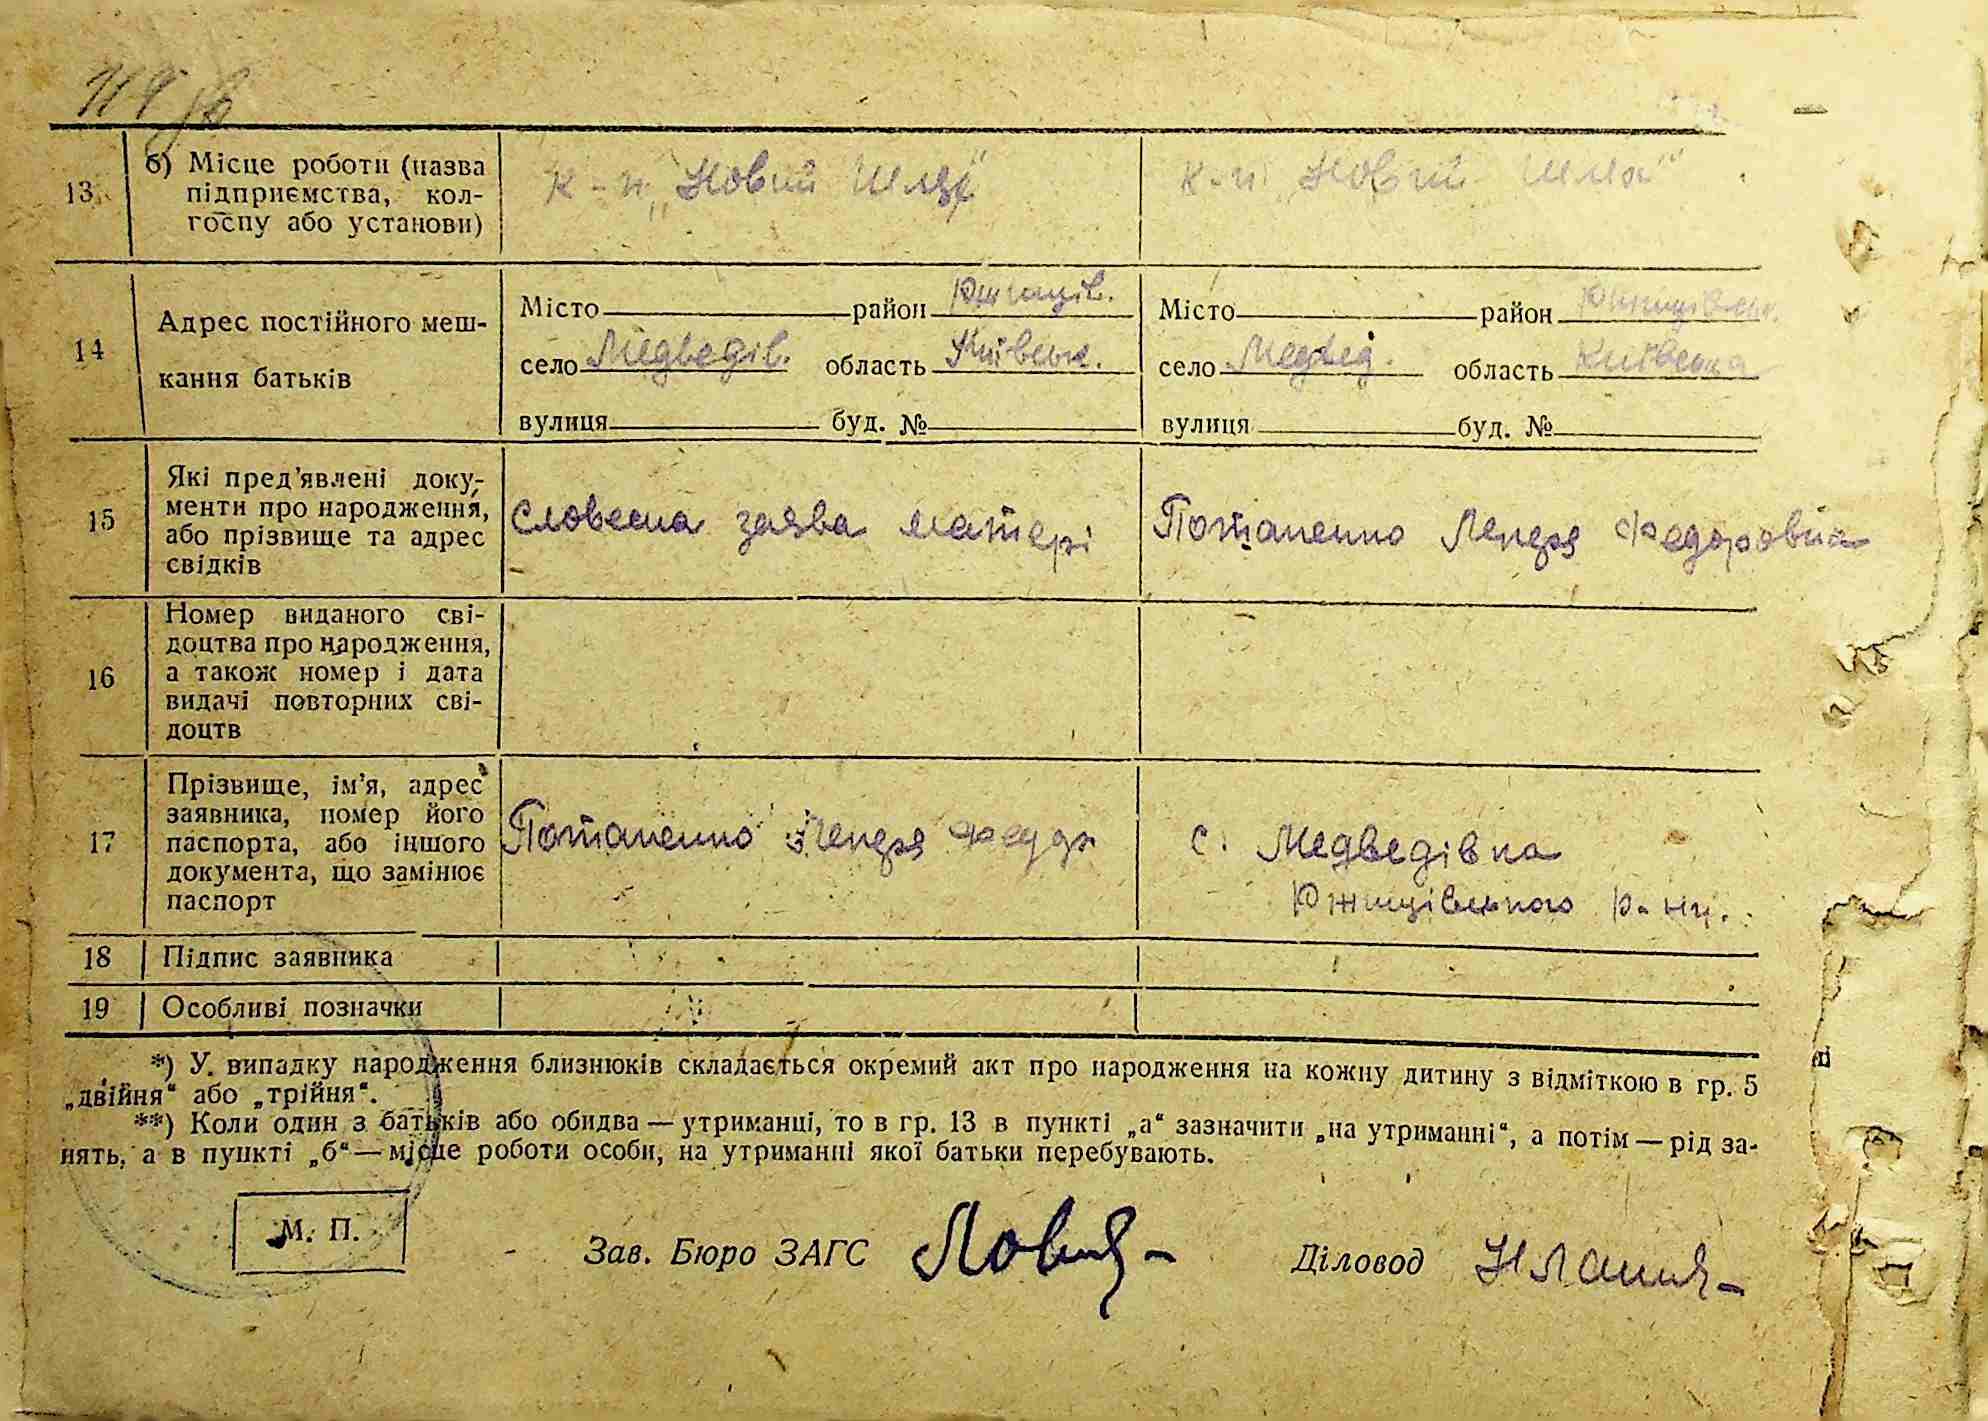 13 б) Місце роботи (назва підприємства, кол-госпу або установи)
к-п „Новий Шлях“
к-п „Новий Шлях“
14 Адрес постійного меш-
кання батьків
Місто район Ржищів.
село Медведів. область Київськ.
вулиця буд. №
Місто район Ржищівськ.
село Медвед. область Київська
вулиця буд. №
15 Які пред’явлені доку-
менти про народження,
або прізвище та адрес
свідків
Словесна заява матері
Потапенко Федоровна
16 Номер виданого сві-
доцтва про народження,
а також номер і дата
видачі повторних сві-
доцтв
17 Прізвище, ім’я, адрес
заявника, номер його
паспорта, або іншого
документа, що замінює
паспорт
Потапенко
с. Медведівка
Ржищівського р-ну.
18 Підпис заявника
19 Особливі позначки
*) У випадку народження близнюків складається окремий акт про народження на кожну дитину з відміткою в гр. 5
„двійня“ або „трійня“.
**) Коли один з батьків або обидва — утриманці, то в гр. 13 в пункті „а“ зазначити „на утриманні“, а потім — рід за-
нять, а в пункті „б“ — місце роботи особи, на утриманні якої батьки перебувають.
М. П.
Зав. Бюро ЗАГС
Діловод